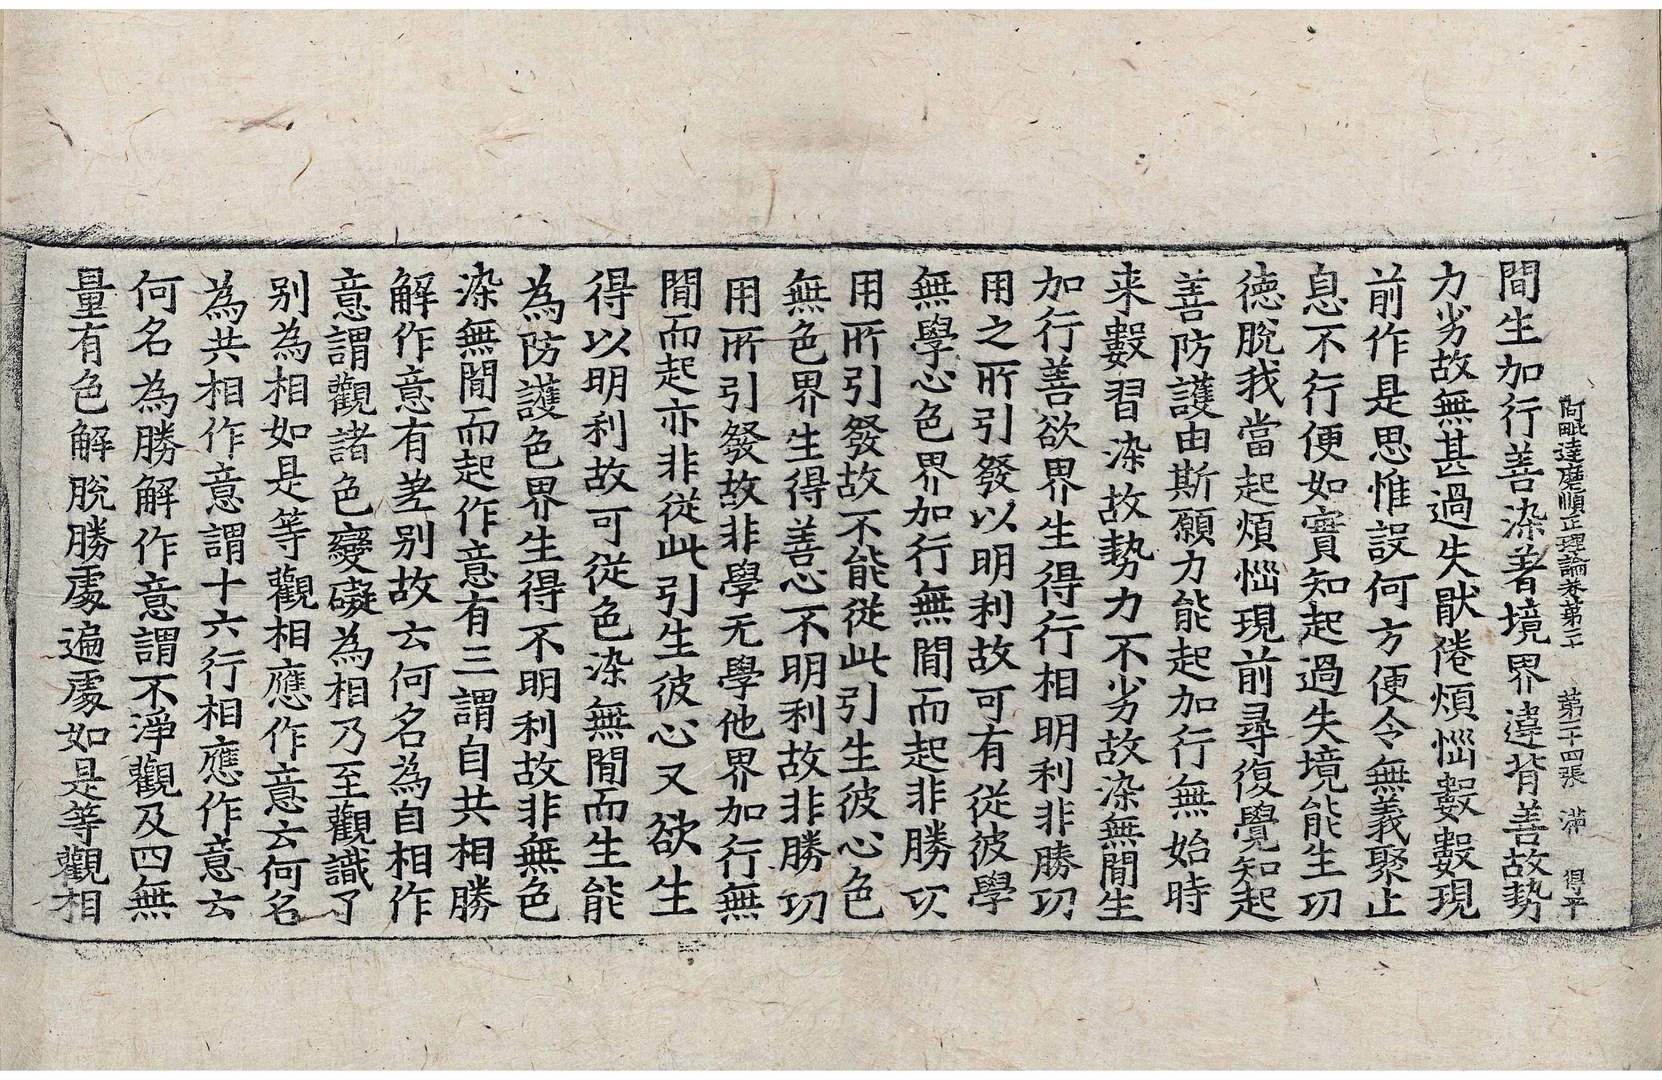 阿毗達磨順正理論卷第二十　第二十四張　滿　得平
間生加行善染著境界違背善故勢
力劣故無甚過失猒倦煩惱數數現
前作是思惟設何方便令無義聚止
息不行便如實知起過失境能生功
德脫我當起煩惱現前尋復覺知起
善防護由斯願力能起加行無始時
来數習染故勢力不劣故染無間生
加行善欲界生得行相明利非勝功
用之所引發以明利故可有從彼學
無學心色界加行無間而起非勝功
用所引發故不能從此引生彼心色
無色界生得善心不明利故非勝功
用所引發故非學无學他界加行無
間而起亦非從此引生彼心又欲生
得以明利故可從色染無間而生能
為防護色界生得不明利故非無色
染無間而起作意有三謂自共相勝
解作意有差别故云何名為自相作
意謂觀諸色變礙為相乃至觀識了
别為相如是等觀相應作意云何名
為共相作意謂十六行相應作意云
何名為勝解作意謂不淨觀及四無
量有色解脫勝處遍處如是等觀相